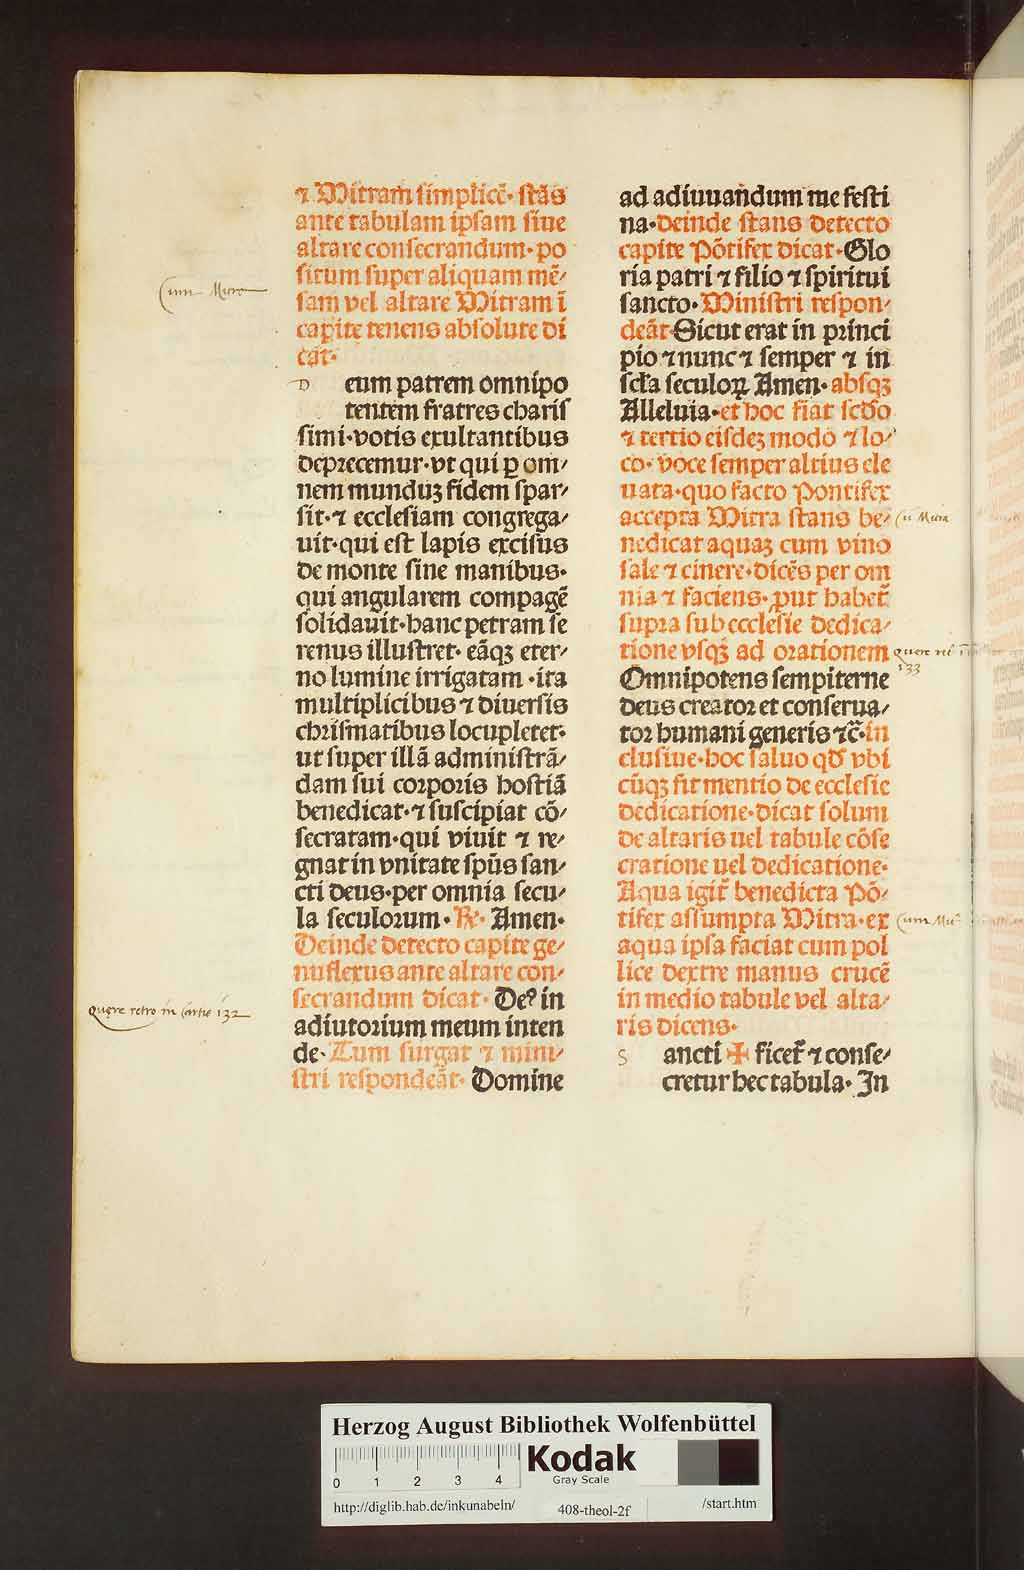 ⁊ Mitram simplicē· stās
ante tabulam ipsam siue
altare consecrandum· po
situm super aliquam mē/
sam vel altare Mitram ī
capite tenens absolute di
cat·
D eum patrem omnipo
tentem fratres charis
simi·votis exultantibus
deprecemur·vt qui ꝑ om/
nem munduꝫ fidem spar/
sit·⁊ ecclesiam congrega/
uit·qui est lapis excisus
de monte sine manibus·
qui angularem compagē
solidauit·hanc petram se
renus illustret· eāqꝫ eter/
no lumine irrigatam ·ita
multiplicibus ⁊ diuersis
chrismatibus locupletet·
ut super illā administrā/
dam sui corporis hostiā
benedicat·⁊ suscipiat cō/
secratam·qui viuit ⁊ re/
gnat in vnitate spūs san/
cti deus·per omnia secu/
la seculorum· ℟· Amen·
Deinde detecto capite ge/
nuflexus ante altare con/
secrandum dicat· Deꝰ in
adiutorium meum inten
de· Tum surgat ⁊ mini/
stri respondeāt· Domine
ad adiuuandum me festi
na·Deinde stans detecto
capite Pōtifex dicat·Glo
ria patri ⁊ filio ⁊ spiritui
sancto· Ministri respon/
deāt·Sicut erat in princi
pio ⁊ nunc ⁊ semper ⁊ in
scła seculoꝝ Amen· absqꝫ
Alleluia·et hoc fiat scďo
⁊ tertio eisdeꝫ modo ⁊ lo/
co· voce semper altius ele
uata·quo facto Pontifex
accepta Mitra stans be/
nedicat aquaꝫ cum vino
sale ⁊ cinere·dicēs per om
nia ⁊ faciens·ꝓut habet̄
supra sub ecclesie dedica/
tione vsqꝫ ad orationem
Omnipotens sempiterne
deus creator et conserua/
tor humani generis ⁊c̄·in
clusiue·hoc saluo qď vbi
cūqꝫ fit mentio de ecclesie
dedicatione·dicat solum
de altaris uel tabule cōse
cratione uel dedicatione·
Aqua igit̄ benedicta Pō/
tifex assumpta Mitra·ex
aqua ipsa faciat cum pol
lice dextre manus crucē
in medio tabule vel alta/
ris dicens·
S ancti ✠ ficet̄ ⁊ conse/
cretur hec tabula· In
Cum Mitra
Quere retro in cartis 132
Cū Mitra
133
Herzog August Bibliothek Wolfenbüttel
0 1 2 3 4
Kodak
Gray Scale
http://diglib.hab.de/inkunabeln/ 408-theol-2f /start.htm